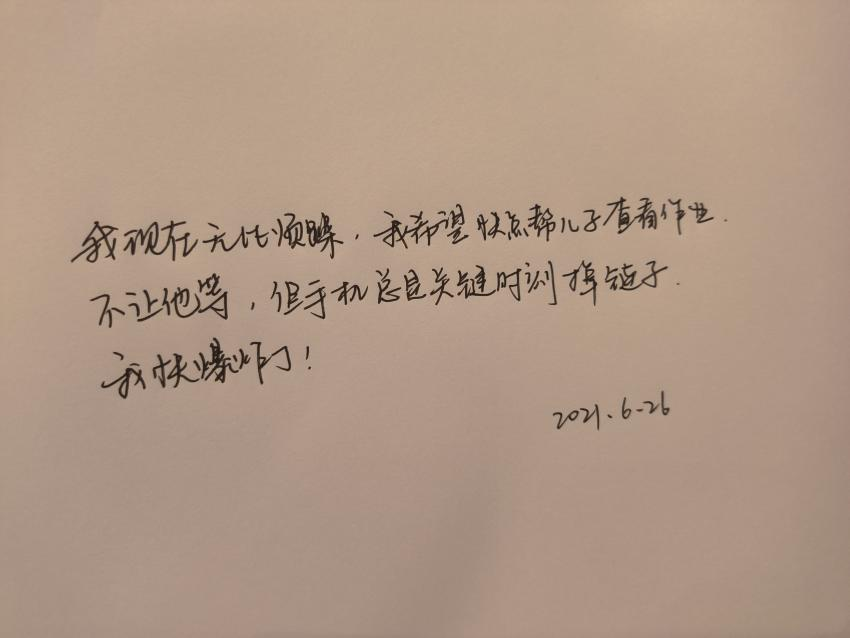 我现在无比烦躁，我希望快点帮儿子查看作业.
不让他等，但手机总是关键时刻掉链子.
我快爆炸了！
2021.6-26